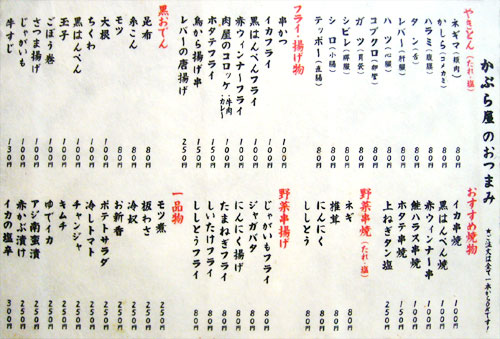 かぶら屋のおつまみ
☆ご注文は全て一本からOKです！
やきとん(たれ・塩)
ネギマ(頬肉) 80円
かしら(コメカミ) 80円
ハラミ(腹膜) 80円
タン(舌) 80円
レバー(肝臓) 80円
ハツ(心臓) 80円
コブクロ(子宮) 80円
ガツ(胃袋) 80円
シビレ(膵臓) 80円
シロ(小腸) 80円
テッポー(直腸) 80円
フライ・揚げ物
串かつ 100円
イカフライ 100円
黒はんぺんフライ 100円
赤ウィンナーフライ 100円
肉屋のコロッケ(牛肉・カレー) 100円
ホタテフライ 150円
鳥から揚げ串 150円
レバーの唐揚げ 250円
黒おでん
昆布 80円
糸こん 80円
モツ 80円
大根 100円
ちくわ 100円
黒はんぺん 100円
玉子 100円
ごぼう巻 100円
さつま揚げ 100円
じゃがいも 100円
牛すじ 130円
おすすめ焼物
イカ串焼 100円
黒はんぺん焼 100円
赤ウィンナー串 100円
鮭ハラス串焼 100円
ホタテ串焼 150円
上ねぎタン塩 250円
野菜串焼(たれ・塩)
ネギ 80円
椎茸 80円
にんにく 80円
ししとう 80円
野菜串揚げ
じゃがいもフライ 80円
ジャガバタ 80円
にんにく揚げ 80円
たまねぎフライ 80円
しいたけフライ 80円
ししとうフライ 80円
一品物
モツ煮 250円
板わさ 250円
お新香 250円
冷奴 250円
ポテトサラダ 250円
冷しトマト 250円
チャンジャ 250円
キムチ 250円
ゆでイカ 250円
アジ南蛮漬 250円
赤かぶ漬け 250円
イカの塩辛 300円